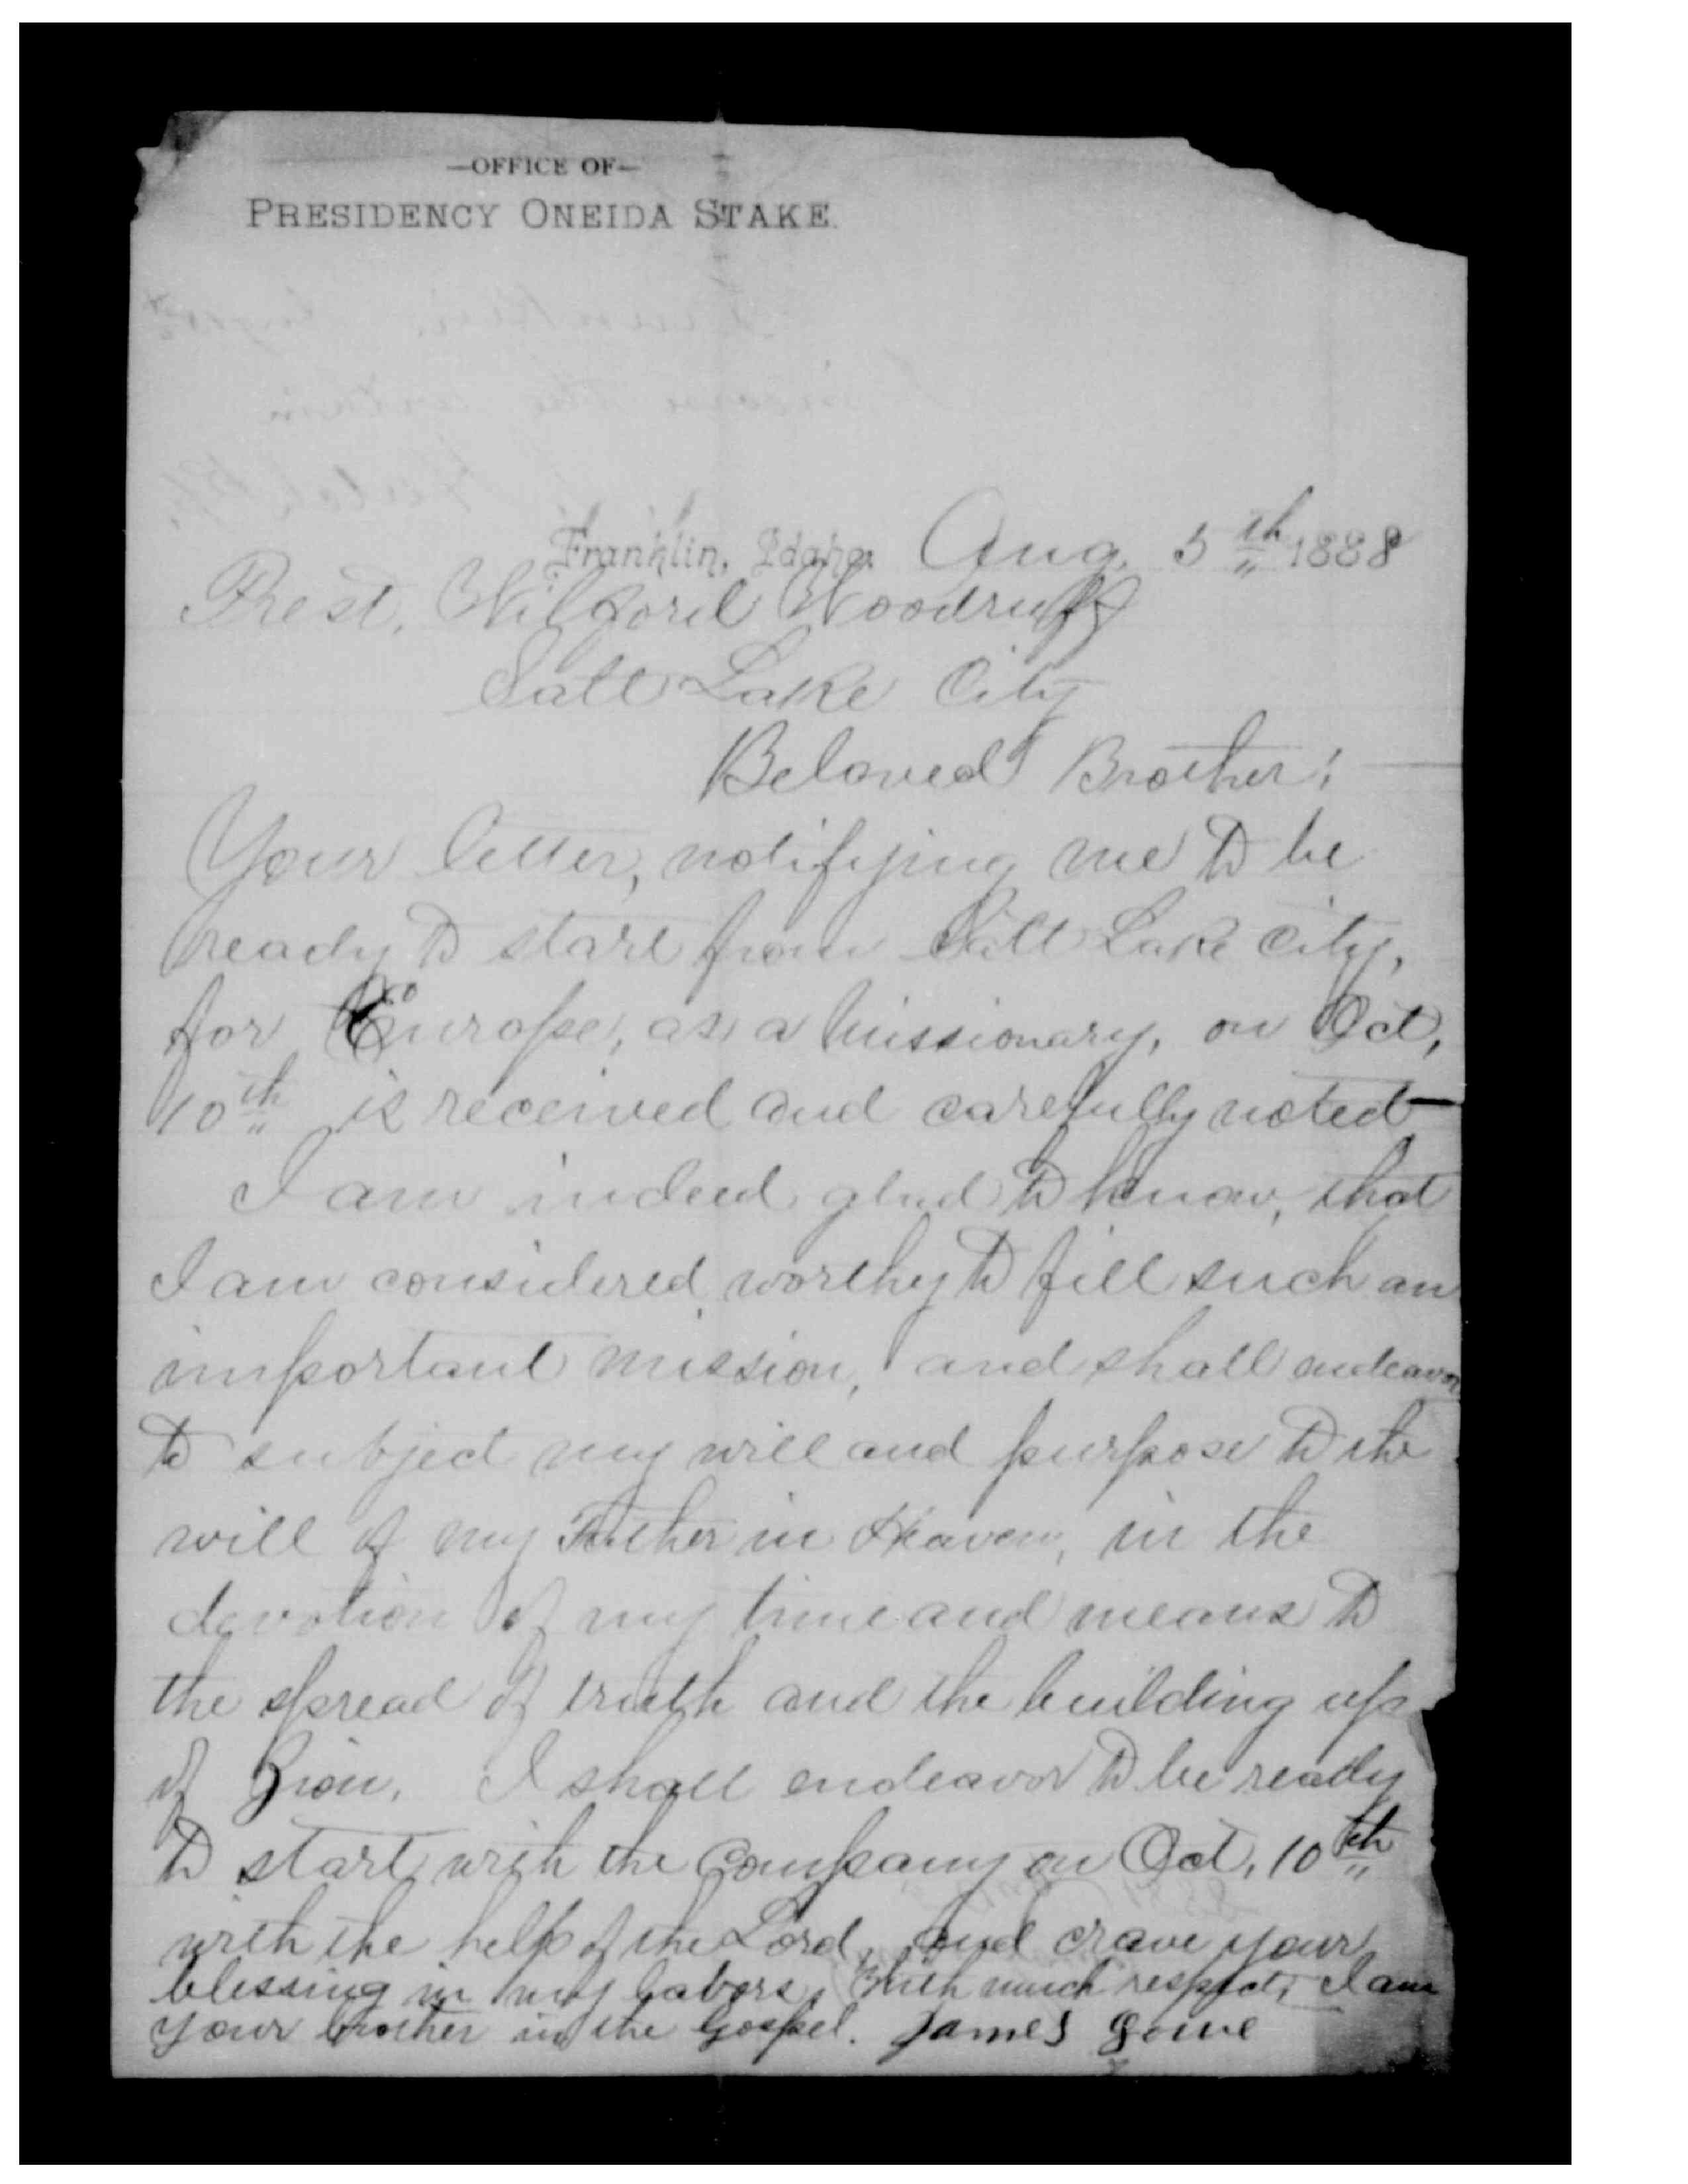 —OFFICE OF—
PRESIDENCY ONEIDA STAKE.
Franklin, Idaho. Aug. 5th 1888
Prest. Wilford Woodruff
Salt Lake City
Beloved Brother:
Your letter, notifying me to be
ready to start from Salt Lake City,
for Europe, as a missionary, on Oct,
10th is received and carefully noted—
I am indeed glad to know, that
I am considered worthy to fill such an
important mission, and shall endeavor
to subject my will and purpose to the
will of my Father in Heaven, in the
devotion of my time and means to
the spread of truth and the building up
of Zion. I shall endeavor to be ready
to start with the company on Oct, 10th
with the help of the Lord, and crave your
blessing in my labors. With much respect, I am
your brother in the Gospel. James